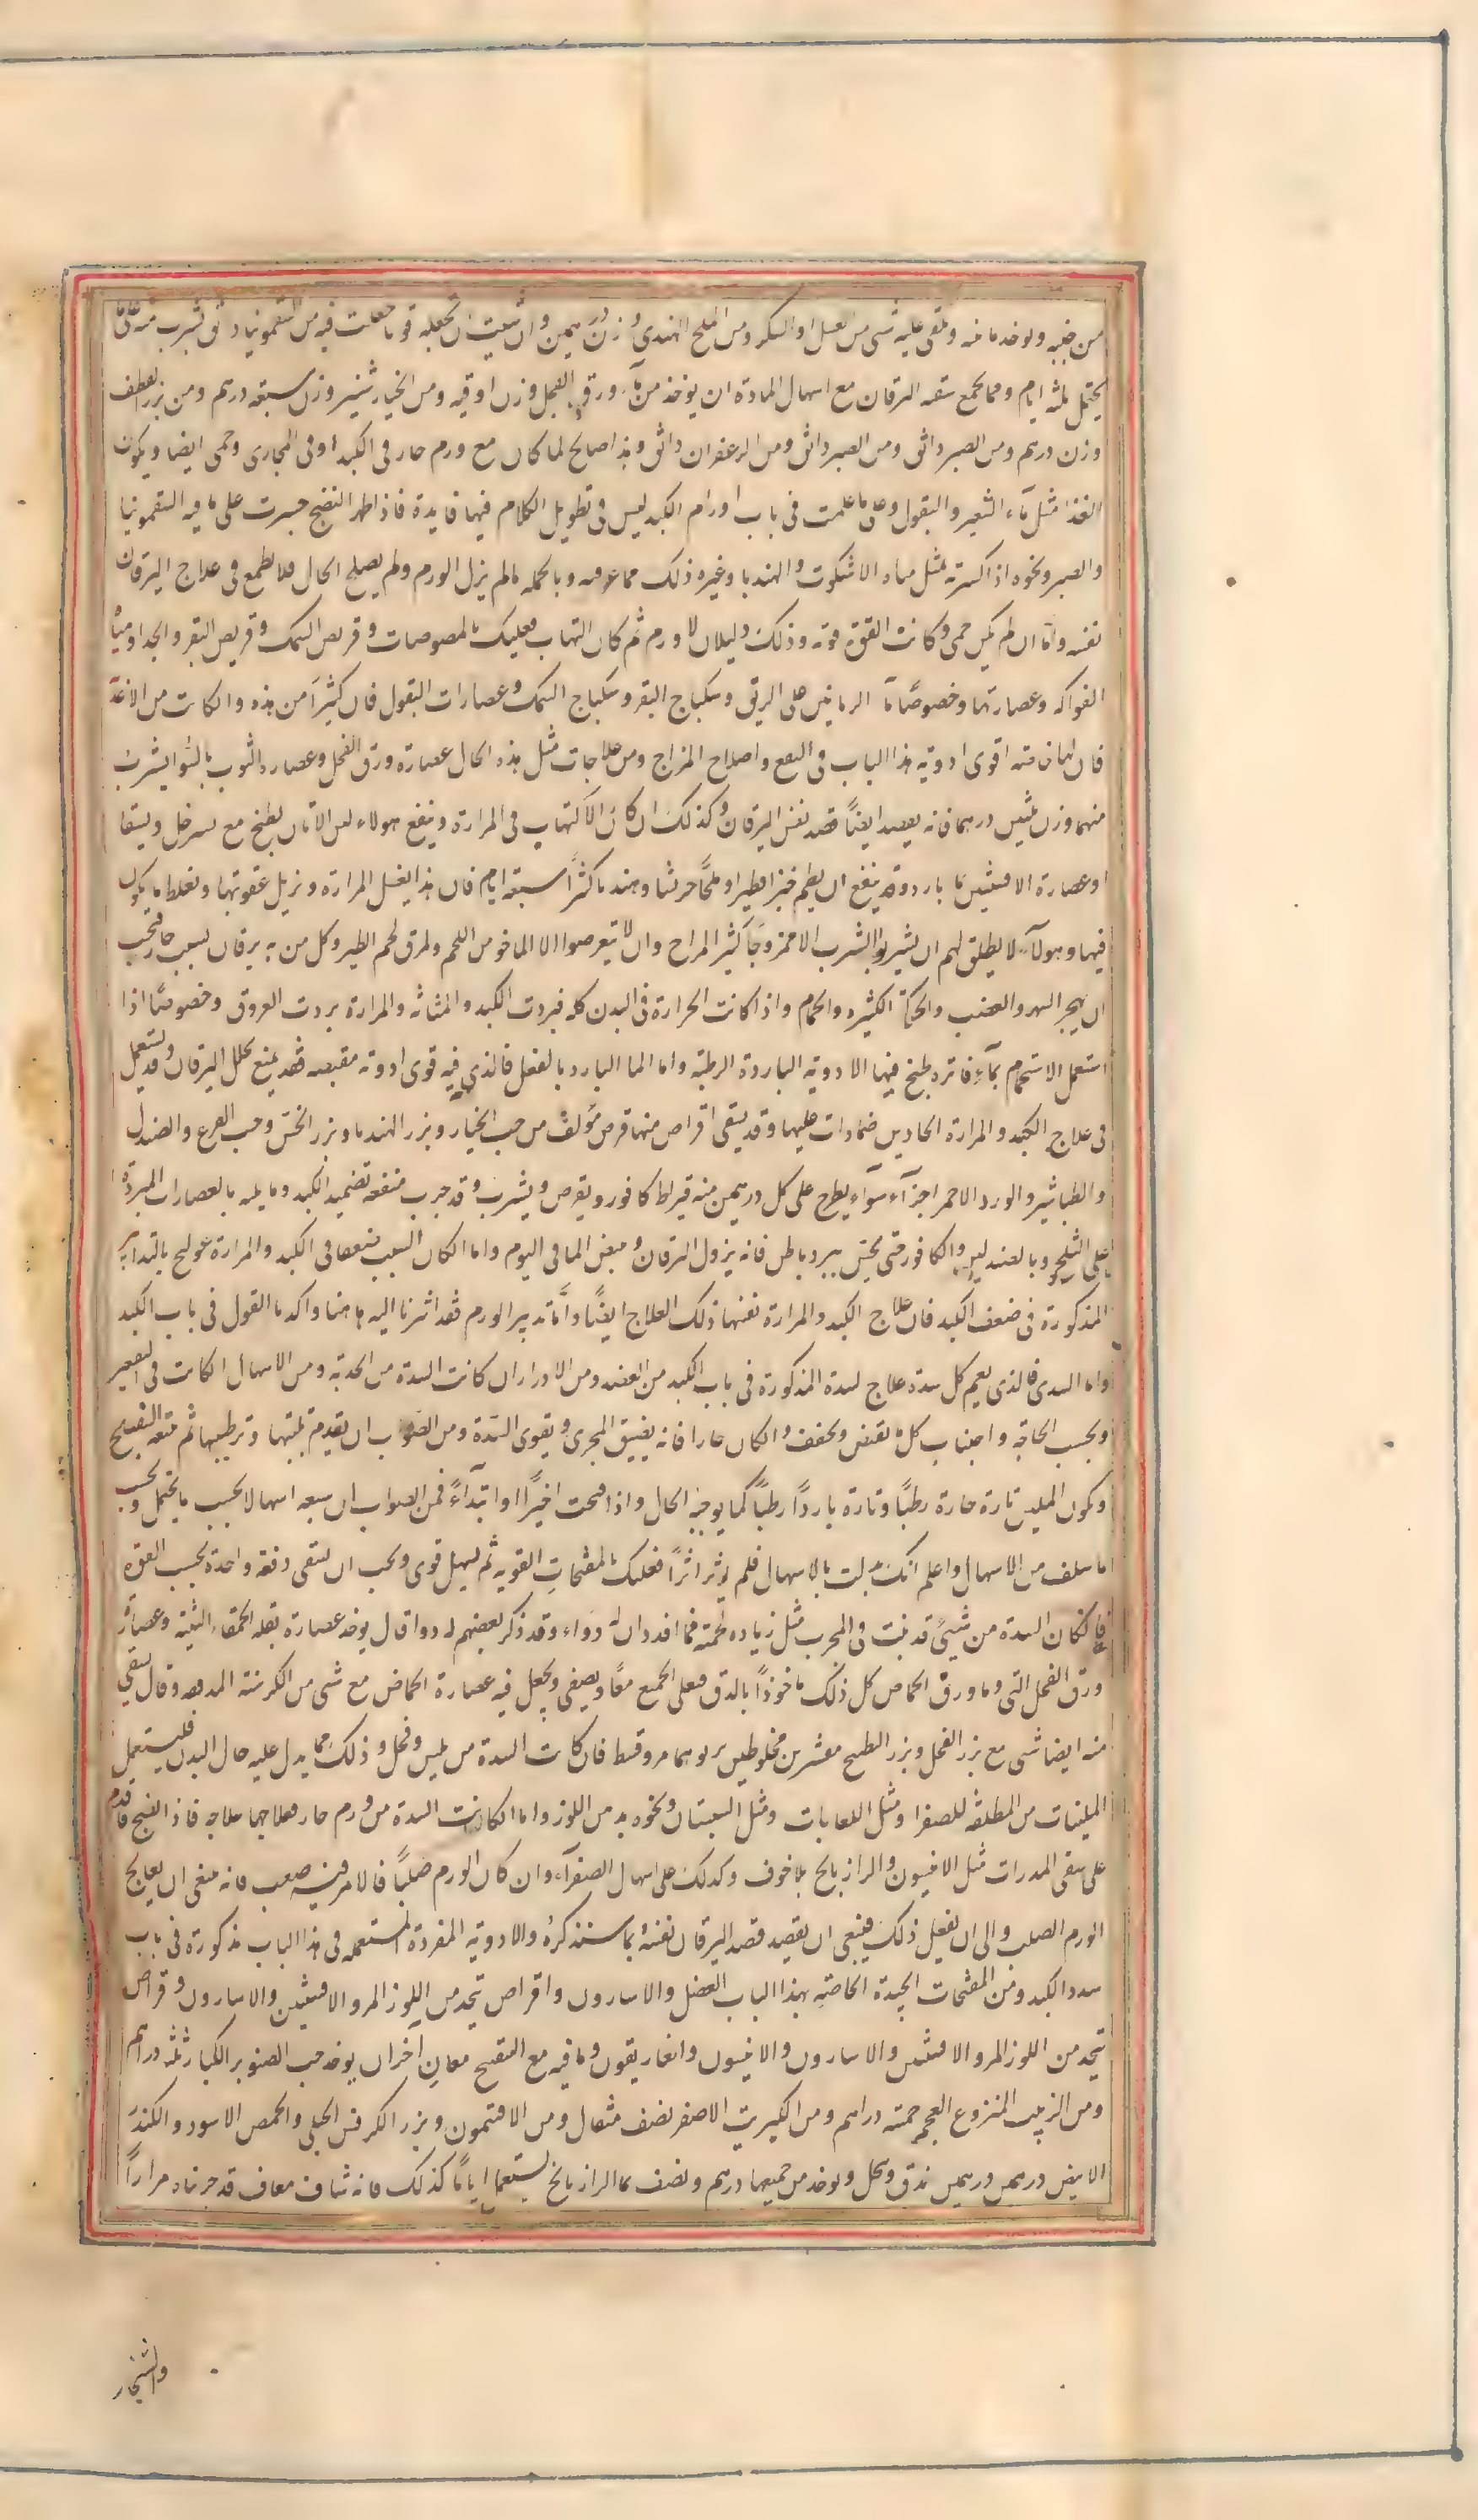 من جنبه ويوخد مائه ويلقى عليه شى من العسل او السكر ومن الملح الهندى وزن درهمين وان شئت ان تجعله قويا جعلت فيه من السقمونيا دانق يشرب منه
يحتمل ثلثه ايام ومما يجمع منفعه اليرقان مع اسهال المادة ان يوخذ من مآء ورق الفجل وزن اوقيه ومن الخيار شنبر وزن سبعه درهم ومن بزر القطف
وزن درهم ومن الصبر دانق ومن الصبر دانق ومن الزعفران دانق وهذا صالح لما كان مع ورم حار فى الكبد او فى المجارى وحمى ايضا ويكون
الغذا مثل مآء الشعير والبقول وعلى ما علمت فى باب اورام الكبد ليس فى تطويل الكلام فيها فايدة فاذا ظهر النضج جسرت على ما فيه السقمونيا
والصبر ونحوه اذا كسرته بمثل مياه الاشكوت والهندبا وغيره ذلك مما عرفته وبالجمله مالم يزل الورم ولم يصلح الحال فلا تطمع فى علاج اليرقان
نفسه واما ان لم يكن حمى وكانت القوة قوته وذلك دليلان لا ورم ثم كان التهاب فعليك بالمصوصات وقريص السمك وقريص البقر والجدا ومياه
الفواكه وعصارتها وخصوصًا مآ الرمانين على الريق وسكباج البقر وسكباج السمك وعصارات البقول فان كثيرًا من هذه وان كانت من الاغذيه
فان لها فى منه اقوى ادوية هذا الباب فى النفع واصلاح المزاج ومن علاجات مثل هذه الحال عصارة ورق الفجل وعصاره التوب بالسوا يشرب
منهما وزن ثلثين درهما فانه يفصد ايضًا قصد نفس اليرقان وكذلك ان كان الالتهاب فى المرارة وينفع هولاء لبن الاتان يطبخ مع يسير خل ويسقا
او عصارة الافسنتين با بارد وقد ينفع ان يطعم خبزا فطيرا وملحًا جريشا وهندبا كثرًا سبعة ايام فان هذا يغسل المرارة ويزيل عفونتها ويغلظ ما يكون
فيها وهولآء لا يطلق لهم ان يشربوا الشرب الا ممزوجًا كثير المزاج وان لا يتعرضوا الا الماخو من اللحم ولمرق لحم الطير وكل من به يرقان لسبب حار فيجب
ان يهجر السهر والغضب والحركة الكثيره والحمام واذا كانت الحرارة فى البدن كله فبردت الكبد والمثانه والمرارة بردت العروق وخصوصًا اذا
استعمل الاستحمام بمآء فاتره طبخ فيها الادوية الباردة الرطبة واما الما البارد بالفعل فالذى فيه قوى ادوته مقبصه فقد يمنع تحلل اليرقان وقد يستعمل
فى علاج الكبد والمرارة الحادين ضمادات عليها وقد يسقى اقراص منها قرص مؤلف من حب الخيار وبزر الهندبا وبزر الخس وحب القرع والصندل
والطباشير والورد الاحمر اجزآء سوآء يطرح على كل درهمين منه قيراط كافور ويقرص ويشرب وقد جرب منفعه تضميد الكبد وما يليه بالعصارات المبردة
على الثلج وبالصندلين والكافور حتى يحس ببرد باطن فانه يزول اليرقان ويبيض الما فى اليوم واما ان كان السبب ضعفا فى الكبد والمرارة عولج بالتدابير
المذكورة فى ضعف الكبد فان علاج الكبد والمرارة نفسها ذلك العلاج ايضًا وأمّا تدبير الورم فقد اشرنا اليه هاهنا واكدنا القول فى باب الكبد
واما السدى فالذى يعم كل سدة علاج لسدة المذكورة فى باب الكبد من الفصد ومن الادرار ان كانت السدة من الحدبة ومن الاسهال ان كانت فى التقعير
وبحسب الحاجة واجتناب كل ما يقبض ويجفف وان كان حارا فانه يضيق المجرى ويقوى السدة ومن الصواب ان يقدم تليينها وترطيبها ثم يتبعه التفتيح
ويكون الملين تارة حارة رطبًا وتارة باردًا رطبًا كما يوجبه الحال واذا فتحت اخيرًا او ابتدآءً فمن الصواب ان يتبعه اسهالا بحسب ما يحتمل وبحسب
ما سلف من الاسهال واعلم انك بدلت بالاسهال فلم يؤثر اثرًا فعليك بالمفتحات القويه ثم يسهل قوى ويجب ان يسقى دفعة واحدة بحسب القوة
فان كان السدة من شئ قد نبت فى المجرى مثل زياده لحمية فما اقدر ان له دواء وقد ذكر بعضهم له دوا قال يوخذ عصارة بقله الحمقاء اللينه وعصارة
ورق الفجل التى وماورق الحماض كل ذلك ماخوذًا بالدق فعلى الجميع معًا ويصفى ويجعل فيه عصارة الحماض مع شى من الكرسنة المدقوقه وقال يسقى
منه ايضا شى مع بزر الفجل وبزر البطيخ مقشرين مخلوطين بربوهما مر وقسط فان كانت السدة من يبس وقحل وذلك مما يدل عليه حال البدن فليستعمل
الملينات من المطلقه للصفرا ومثل اللعابات ومثل السبستان ونحوه بدهن اللوز واما ان كانت السدة من ورم حار فعلاجها علاجه فاذا انضج فاقدم
على سقى المدرات مثل الانيسون والرازيانج بلا خوف وكذلك على اسهال الصفرآء وان كان الورم صلبًا فالامر فيه صعب فانه ينبغى ان يعالج
الورم الصلب والى ان يفعل ذلك فينبغى ان يقصد قصد اليرقان نفسه بما ستنذكره والادوية المفردة المستعمله فى هذا الباب مذكورة فى باب
سدد الكبد ومن المفتحات الجيدة الخاصة بهذا الباب العضل والاسارون واقراص تتخد من اللوز المر والافسنتين والاسارون وقراص
تتخد من اللوز المر والافسنتين والاسارون والانيسون والغاريقون وما فيه مع التفتيح معان اخر ان يوخد حب الصنوبر الكبار ثلثه دراهم
ومن الزبيب المنزوع العجم خمسة دراهم ومن الكبريت الاصفر نصف مثقال ومن الافتيمون وبزر الكرفس الجبلى والحمص الاسود والكندر
الابيض درهمين درهمين يدق وينخل ويوخد من جميعها درهم ونصف بما الرازيانج يستعمل اياما كذلك فانه شاف معاف قد جربناه مرارًا
والشنجار